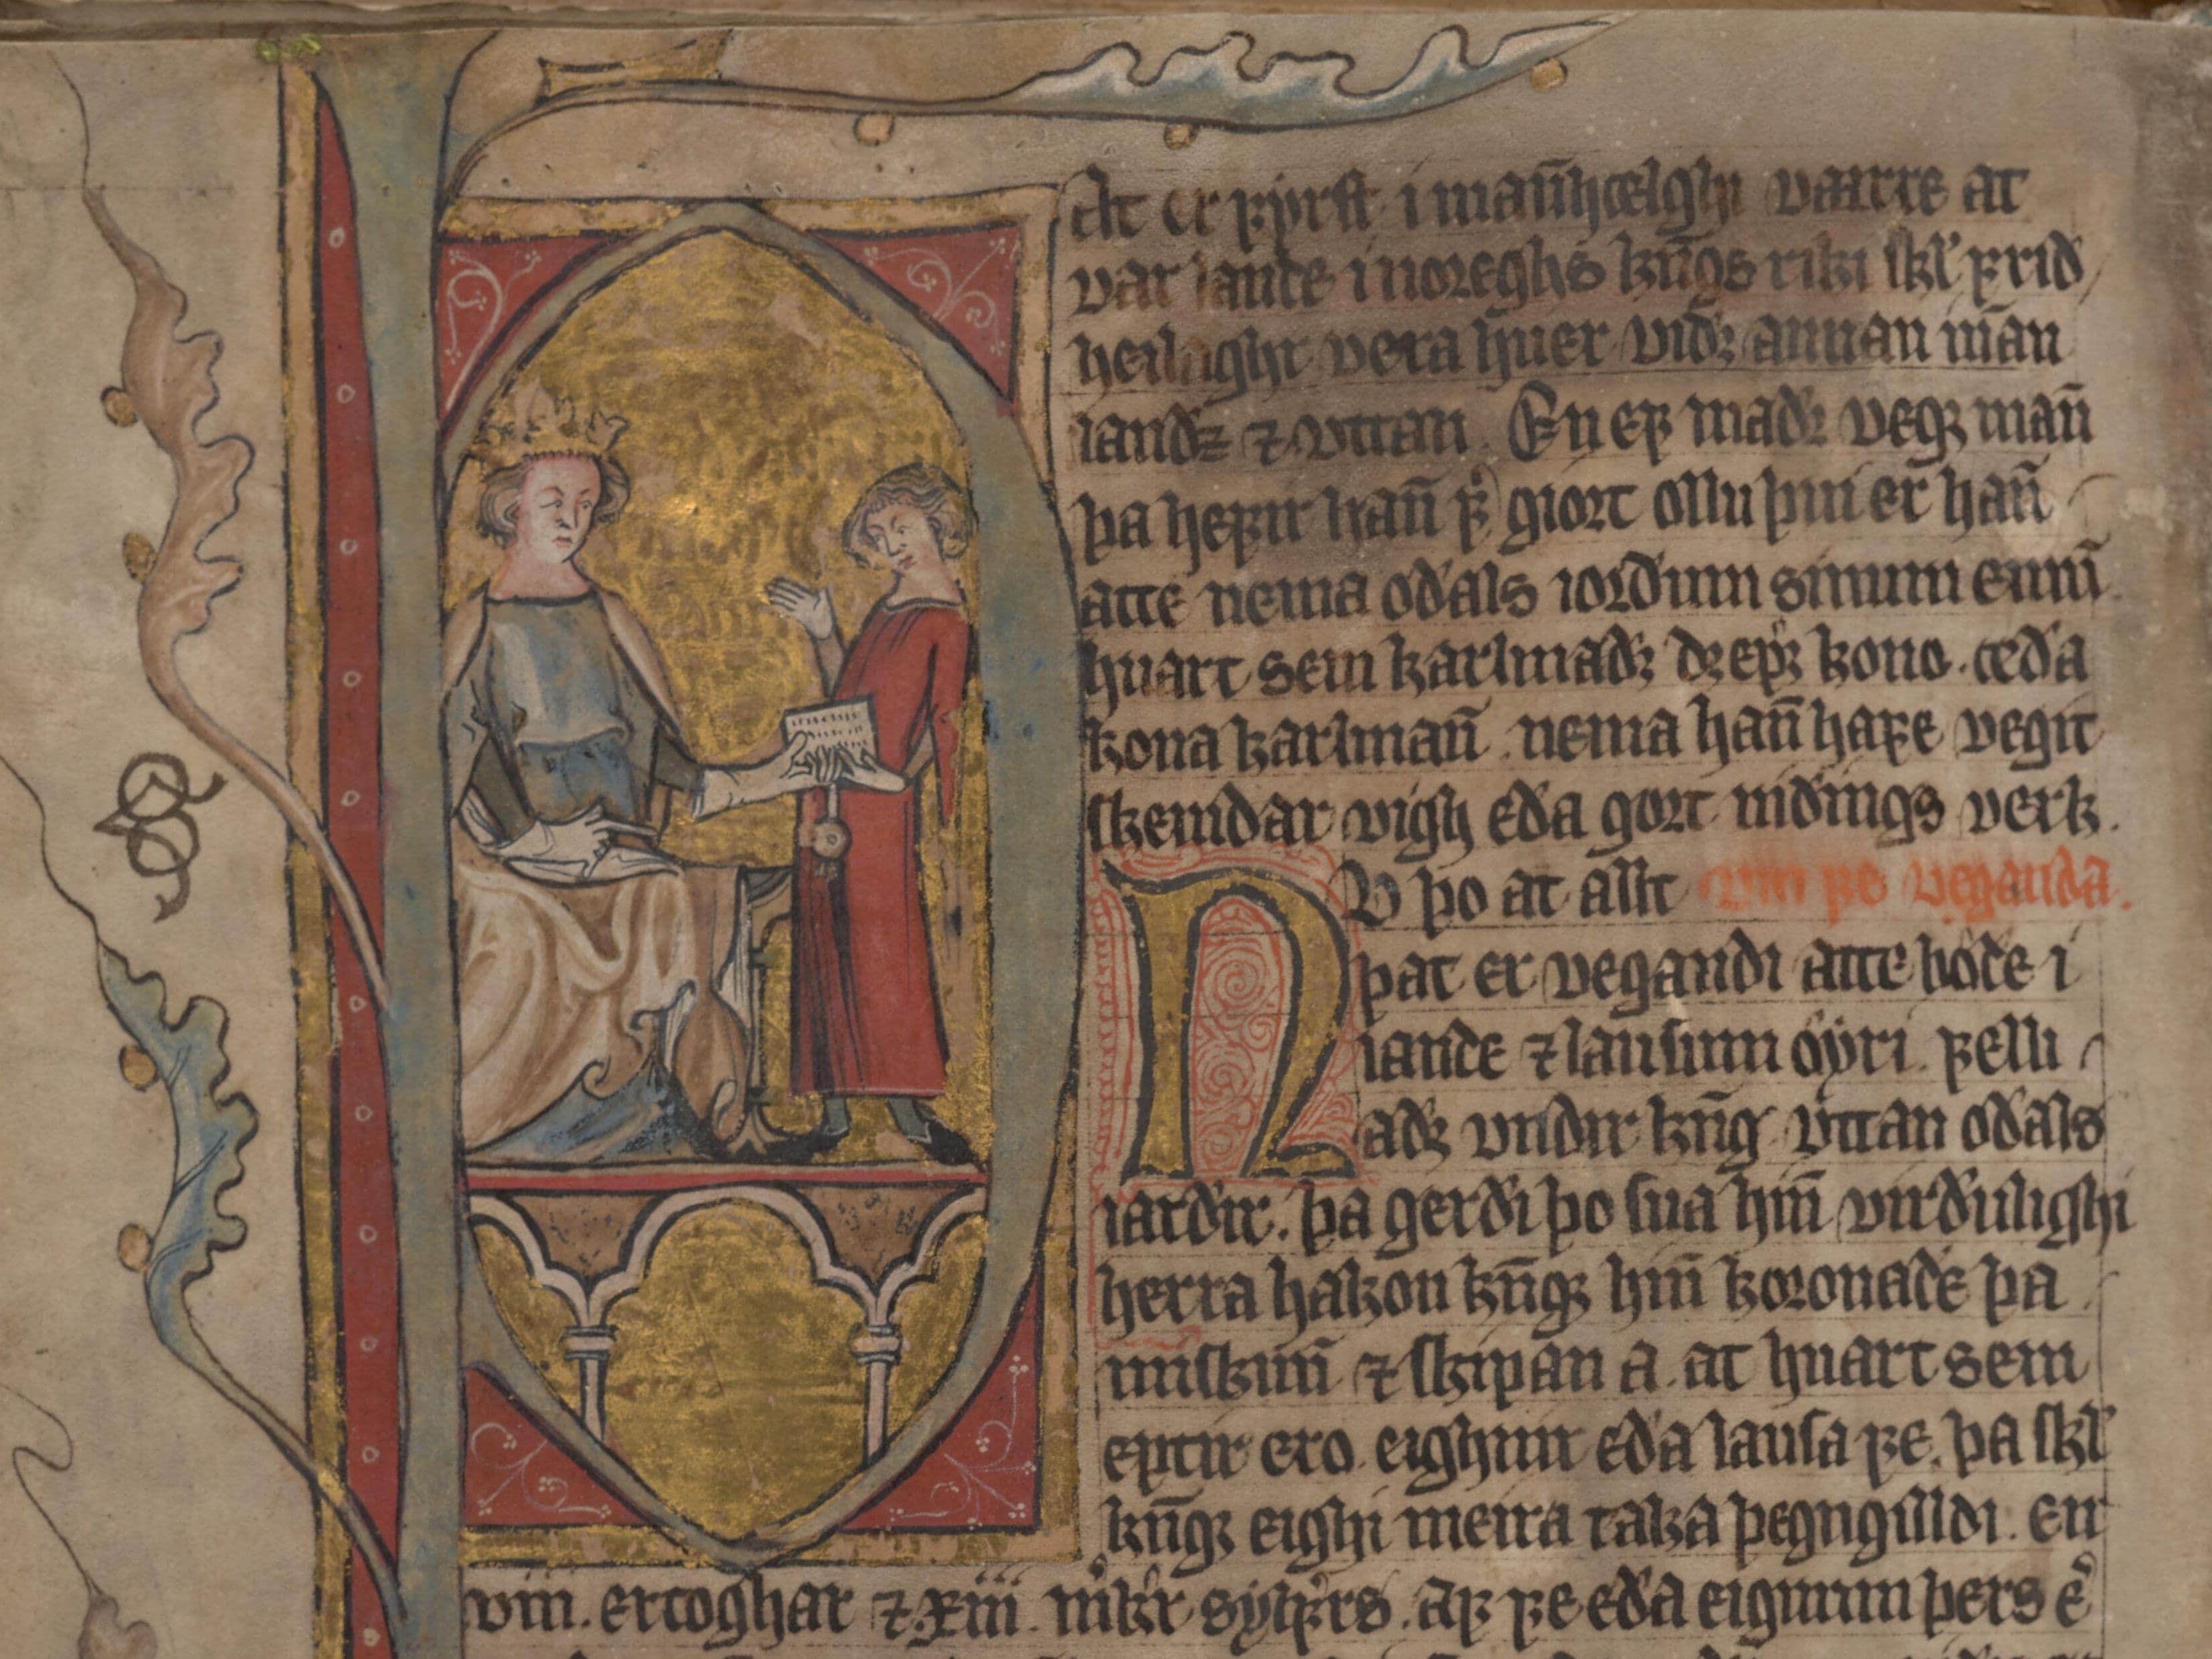 at er fyrst i man̄hælghi varre at
var lande i noreghs kn̄gs riki skl̓ frid
heilaght vera huer vidꝛ annan in̄an
landꝫ ⁊ vttan. En ef madꝛ vegꝛ man̄
þa hefir han̄ f͛ giort ollu þui er han̄
atte nema odals iordum sinum einū.
huart sem karlmadꝛ dꝛepꝛ kono. æda
kona karlman̄. nema han̄ hafe vegit
skemdar vigh eda gort nidings verk.
NV þo at allt vm fe veganda.
þat er vegandi atte bode i
lande ⁊ lausum öyri. felli
adꝛ vndir kn̄g vttan odals
iardir. þa gerdi þo sua hin̄ virdulighi
herra hakon kn̄gꝛ hin̄ koronade þa
miskun̄ ⁊ skipan a. at huart sem
eptir ero. eighnir eda lausa fe. þa skl̓
kn̄gꝛ eighi meira taka þegngilldi. en
viii. ertoghar ⁊ xiii. m͛kr sylfrs. af fe eda eignum þers e͛